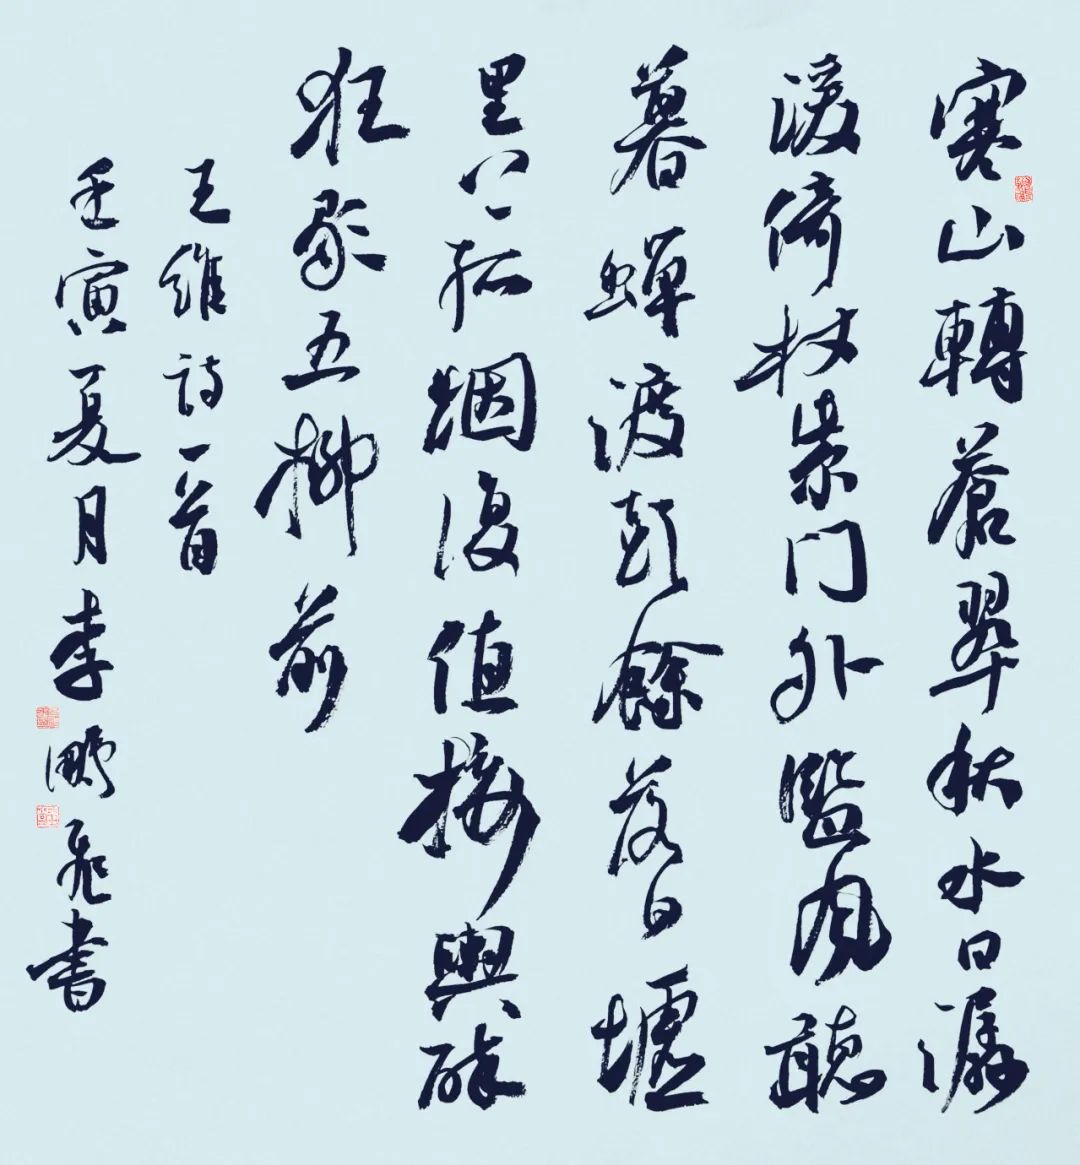 寒山轉蒼翠秋水日潺
湲倚杖柴门外臨風聽
暮蟬渡頭餘落日墟
里上孤烟復值接輿醉
狂歌五柳前
王維詩一首
壬寅夏月李鵬飛書